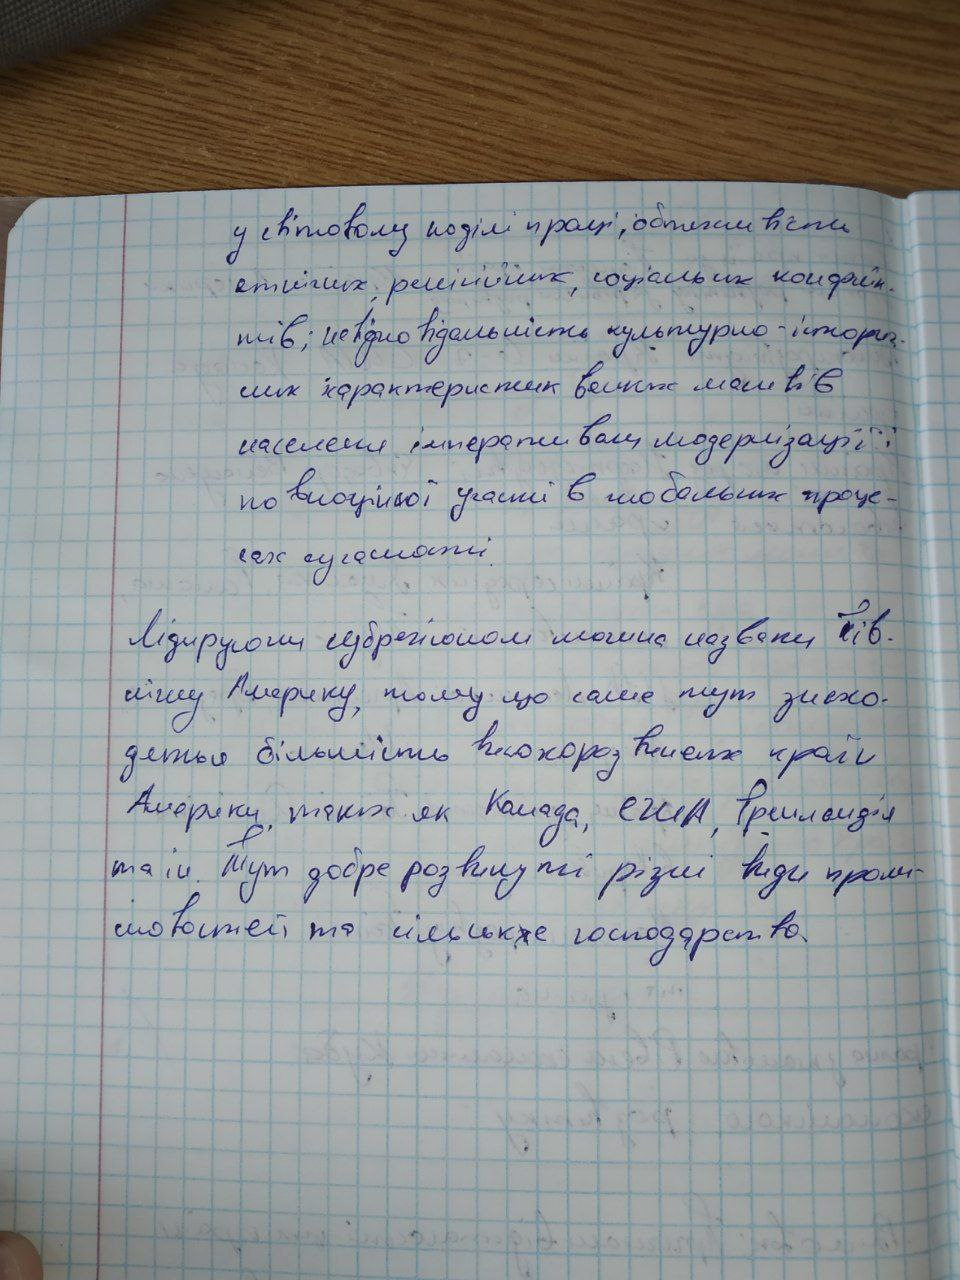 у світовому поділі праці, обтяжливість
етнічних, релігійних, соціальних конфлік-
тів; невідповідальність культурно-історич-
них характеристик великих масивів
населеня імперативам модернізації і
повноцінної участі в глобальних проце-
сах сучасності.
Лідируючим субрегіоном можна назвати Пів-
нічну Америку, тому що саме тут знахо-
дяться більшість високорозвинених країн
Америки, таких як Канада, США, Гренландія
та ін. Тут добре розвинуті різні види проми-
словостей та сільське господарство.